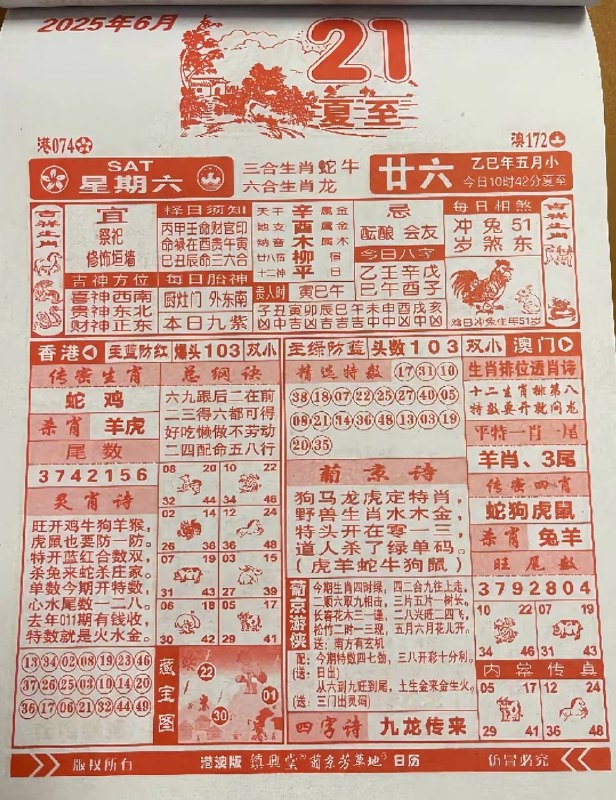 2025年6月
21
夏至
港074
澳172
SAT
星期六
三合生肖蛇牛
六合生肖龙
廿六
乙巳年五月小
今日10时42分夏至
吉祥生肖
宜
祭祀
修饰垣墙
择日须知
丙甲壬命财官印
命禄在酉贵午寅
巳丑辰命三六合
天干 辛 属金
地支 酉 属金
纳音 木 属木
廿八宿 柳 宿
十二神 平 日
忌
酝酿 会友
今日八字
乙壬辛戊
巳午酉子
每日相煞
冲兔51
岁煞东
吉祥生肖
吉神方位
喜神西南
贵神东北
财神正东
每日胎神
厨灶门 外东南
本日九紫
贵人时 寅巳午
子丑寅卯辰巳午未申酉戌亥
鸡日冲兔生年51岁
香港 主蓝防红 爆头103 双小
主绿防蓝 头数103 双小 澳门
传密生肖
蛇 鸡
杀肖 羊虎
尾数
3742156
灵肖诗
旺开鸡牛狗羊猴,
虎鼠也要防一防。
特开蓝红合数双,
杀兔来蛇杀庄家。
单数今期开特数,
心水尾数一二八。
去年011期有钱收,
特数就是火水金。
总纲诀
六九跟后二在前
二三得六都可得
好吃懒做不劳动
二四配命五八行
08 20
32 44
10 22
34 46
02 14
26 38
12 24
36 48
07 19
31 43
03 15
27 39
06 18
30 42
05 17
29 41
13 34 02 08 19 23 46
37 26 25 03 10 14 20
36 17 06 21 49 44 49
藏宝图
22
30
01
精选特数 17 31 10
38 18 07 22 25 27 40 05
08 21 34 36 48 13 03 19
20 35
葡京诗
狗马龙虎定特肖,
野兽生肖水木金,
特头开在零一三,
道人杀了绿单码。
(虎羊蛇牛狗鼠)
葡京游侠
今期生肖四时绿,四二合九往上走。
二顺六取九相击,三片五片一树长。
长春花木三一谨,二八兴旺二四飞。
松竹二时一三现,五月六月花儿开。
送:南方有玄机
配:今期特数四七勿,三八开彩十分利。
(送:日出)
从六到九旺到尾,土生金来金生火。
(送:三门出灵码)
四字诗 九龙传来
生肖排位透肖诗
十二生肖排第八
特数要开就问龙
平特一肖一尾
羊肖、3尾
传密四肖
蛇狗虎鼠
杀肖 兔羊
旺尾数
3792804
10 22
34 46
07 19
31 43
内掌传真
05 17
29 41
12 24
36 48
版权所有
港澳版 镇兴堂 葡京芳草地 日历
仿冒必究